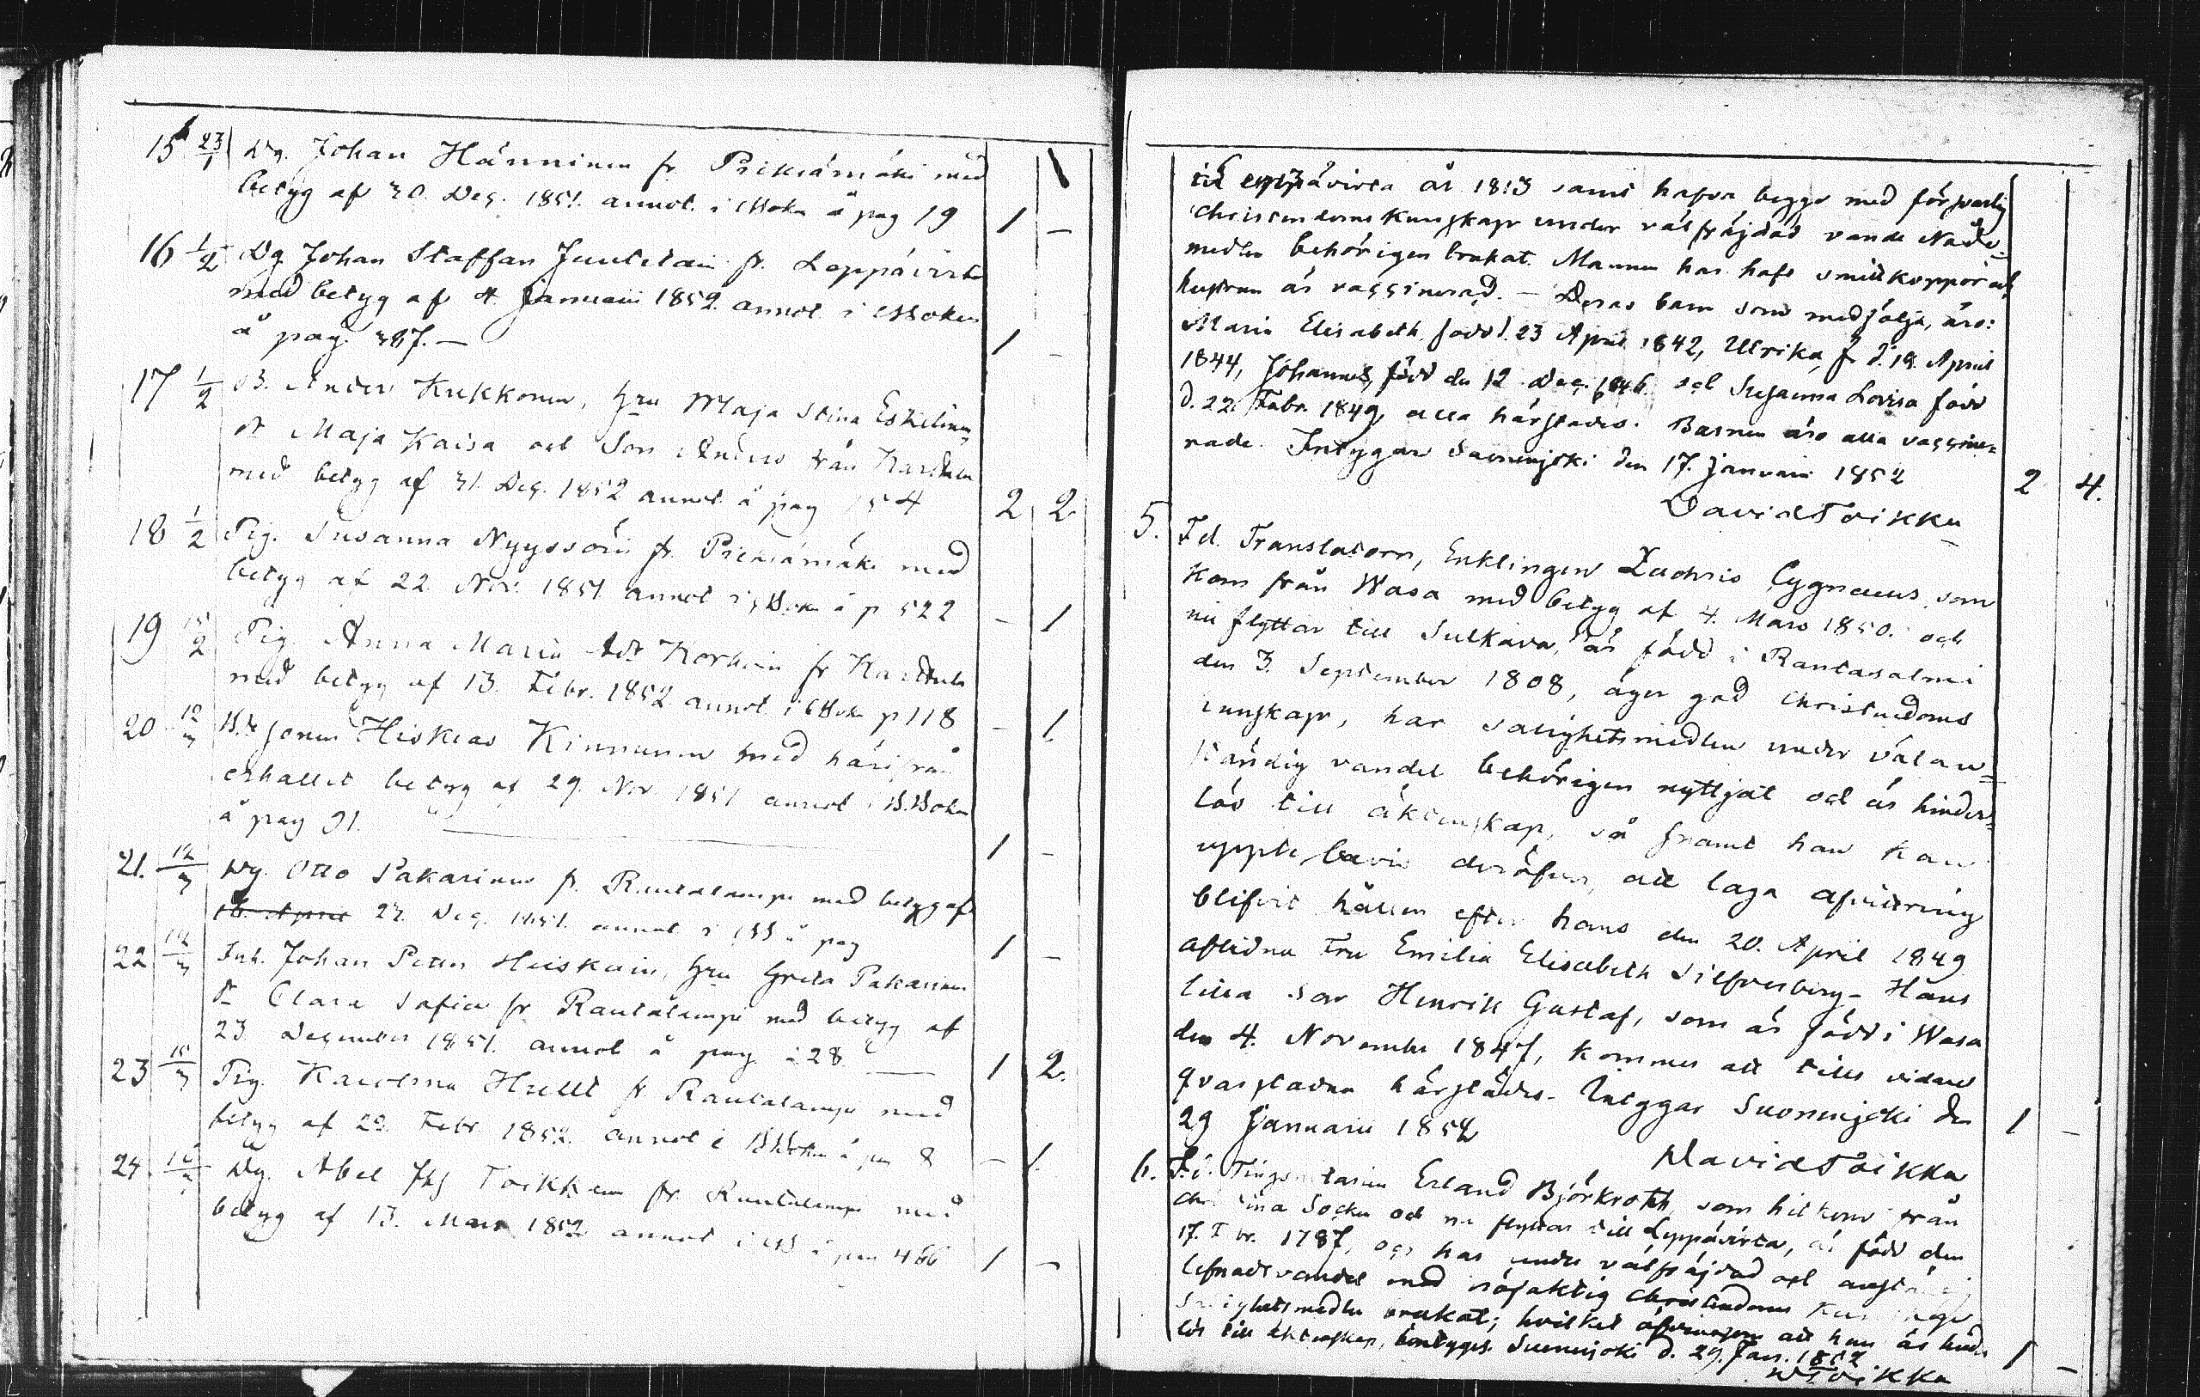 15 23/1 Dg. Johan Hänninen fr. Pieksämäki med
betyg af 30. Dec. 1851. annot. i Boken å pag 19 1 –
16 1/2 Dg Johan Staffan Juutilain fr. Leppävirta
med betyg af 4. Januarii 1852. annot i Boken
å pag. 387. – 1 –
17 1/2 B. Anders Kukkonen, hru Maja Stina Eskelinen,
dr Maja Kaisa och Son Anders från Karttula
med betyg af 31. Dec. 1852 annot å pag 154 2 2
18 1/2 Pig. Susanna Nyyssöin fr. Pieksämäki med
betyg af 22. Nov. 1851 annot i Boken å p 522 – 1
19 15/2 Pig. Anna Maria Korhoin fr Karttula
med betyg af 13. Febr. 1852 annot. i Boken p 118 – 1.
20 12/3 Jonas Hiskias Kinnunen med härifrån
erhållet betyg af 29. Nov. 1851 annot i B.Boken
å pag 91. 1 –
21. 12/3 Dg. Otto Pakarinen fr. Rautalampi med betyg af
27. Dec. 1851. annot. i å pag 1 –
22 12/3 Inh. Johan Petter Heiskain, hru Greta Pakarinen
dr Clara Sofia fr Rautalampi med betyg af
23 December 1851. annot å pag 28. 1 2.
23 Pig. Karolina Hullt fr Rautalampi med
betyg af 29. Febr. 1852. annot i Boken å pag 8 – 1.
24. Dg. Abel Toikkain fr. Rautalampi med
betyg af 13. Mars 1852 annot i å pag 466 1 –
till Leppävirta år 1813 samt hafva begge med försvarlig
Christendoms Kunskap under välfräjdad vandel Nåde-
medlen behörigen brukat. Mannen har haft smittkoppor och
hustrun är vaccinerad. – Deras barn som medfölja, äro:
Maria Elisabeth, född d. 23 April 1842, Ulrika, f. d. 19. April
1844, Johannes, född den 12. Dec. 1846 och Susanna Lovisa född
d. 22. Febr. 1849, alla härstädes. Barnen äro alla vaccine-
rade. Intygar Suonenjoki den 17. Januarii 1852 2 4.
David Toikka
5. Fd. Translatorn, Enklingen Zachris Cygnaeus, som
kom från Wasa med betyg af 4. Mars 1850. och
nu flyttar till Sulkava, är född i Rantasalmi
den 3. September 1808, äger god Christendoms
kunskap, har salighetsmedlen under välan-
ständig vandel behörigen nyttjat och är hinders-
lös till äktenskap, så framt han kan
uppte bevis deröfver, att laga afvittring
blifvit hållen efter hans den 20. April 1849
aflidna Fru Emilia Elisabeth Silfverberg – Hans
lilla son Henrik Gustaf, som är född i Wasa
den 4. November 1847, kommer att tills vidare
qvarstadna härstädes. Intygar Suonenjoki den
29 Januarii 1852 1 –
David Toikka
6. F.d. Erland Björkroth, som hit kom från
Socken och nu flyttar till Leppävirta, är född den
17. 1787, och har under välfräjdad och anständig
lefnadsvandel med nöjaktig Christendoms kunskap
Salighetsmedlen brukat; hvilket äfvensom att han är hinders-
lös till äktenskap, intygas. Suonenjoki d. 29. Jan. 1852 1 –
D Toikka